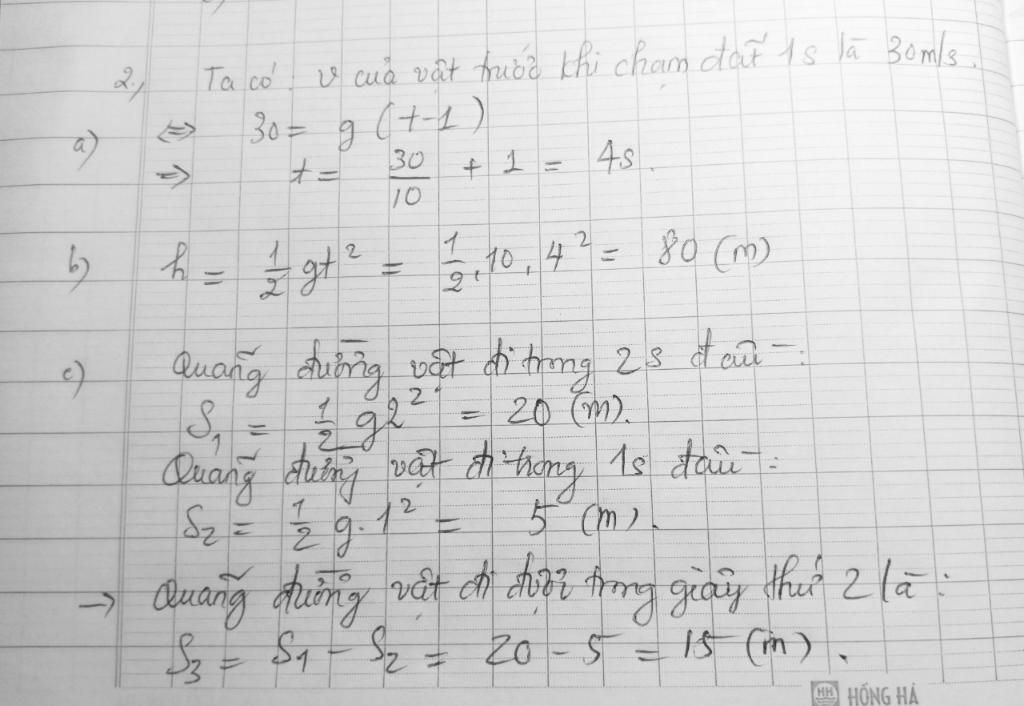 2., Ta có: v của vật trước khi chạm đất 1s là 30m/s.
a) <=> 30 = g (t-1)
=> t = 30/10 + 1 = 4s.
b) h = 1/2 gt² = 1/2 . 10 . 4² = 80 (m)
c) Quãng đường vật đi trong 2s đầu:
S₁ = 1/2 g2² = 20 (m).
Quãng đường vật đi trong 1s đầu:
S₂ = 1/2 g.1² = 5 (m).
→ Quãng đường vật đi được trong giây thứ 2 là:
S₃ = S₁ - S₂ = 20 - 5 = 15 (m).
HH HỒNG HÀ